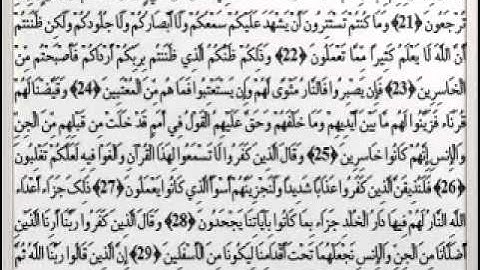 تُرْجَعُونَ ﴿21﴾ وَمَا كُنتُمْ تَسْتَتِرُونَ أَنْ يَشْهَدَ عَلَيْكُمْ سَمْعُكُمْ وَلَا أَبْصَارُكُمْ وَلَا جُلُودُكُمْ وَلَكِن ظَنَنتُمْ
أَنَّ اللَّهَ لَا يَعْلَمُ كَثِيرًا مِّمَّا تَعْمَلُونَ ﴿22﴾ وَذَلِكُمْ ظَنُّكُمُ الَّذِي ظَنَنتُم بِرَبِّكُمْ أَرْدَاكُمْ فَأَصْبَحْتُم مِّنَ
الْخَاسِرِينَ ﴿23﴾ فَإِن يَصْبِرُوا فَالنَّارُ مَثْوًى لَهُمْ وَإِن يَسْتَعْتِبُوا فَمَا هُم مِّنَ الْمُعْتَبِينَ ﴿24﴾ وَقَيَّضْنَا لَهُمْ
قُرَنَاءَ فَزَيَّنُوا لَهُم مَّا بَيْنَ أَيْدِيهِمْ وَمَا خَلْفَهُمْ وَحَقَّ عَلَيْهِمُ الْقَوْلُ فِي أُمَمٍ قَدْ خَلَتْ مِن قَبْلِهِم مِّنَ الْجِنِّ
وَالْإِنسِ إِنَّهُمْ كَانُوا خَاسِرِينَ ﴿25﴾ وَقَالَ الَّذِينَ كَفَرُوا لَا تَسْمَعُوا لِهَذَا الْقُرْآنِ وَالْغَوْا فِيهِ لَعَلَّكُمْ تَغْلِبُونَ
﴿26﴾ فَلَنُذِيقَنَّ الَّذِينَ كَفَرُوا عَذَابًا شَدِيدًا وَلَنَجْزِيَنَّهُمْ أَسْوَأَ الَّذِي كَانُوا يَعْمَلُونَ ﴿27﴾ ذَلِكَ جَزَاءُ أَعْدَاءِ
اللَّهِ النَّارُ لَهُمْ فِيهَا دَارُ الْخُلْدِ جَزَاءً بِمَا كَانُوا بِآيَاتِنَا يَجْحَدُونَ ﴿28﴾ وَقَالَ الَّذِينَ كَفَرُوا رَبَّنَا أَرِنَا الَّذَيْنِ
أَضَلَّانَا مِنَ الْجِنِّ وَالْإِنسِ نَجْعَلْهُمَا تَحْتَ أَقْدَامِنَا لِيَكُونَا مِنَ الْأَسْفَلِينَ ﴿29﴾ إِنَّ الَّذِينَ قَالُوا رَبُّنَا اللَّهُ ثُمَّ